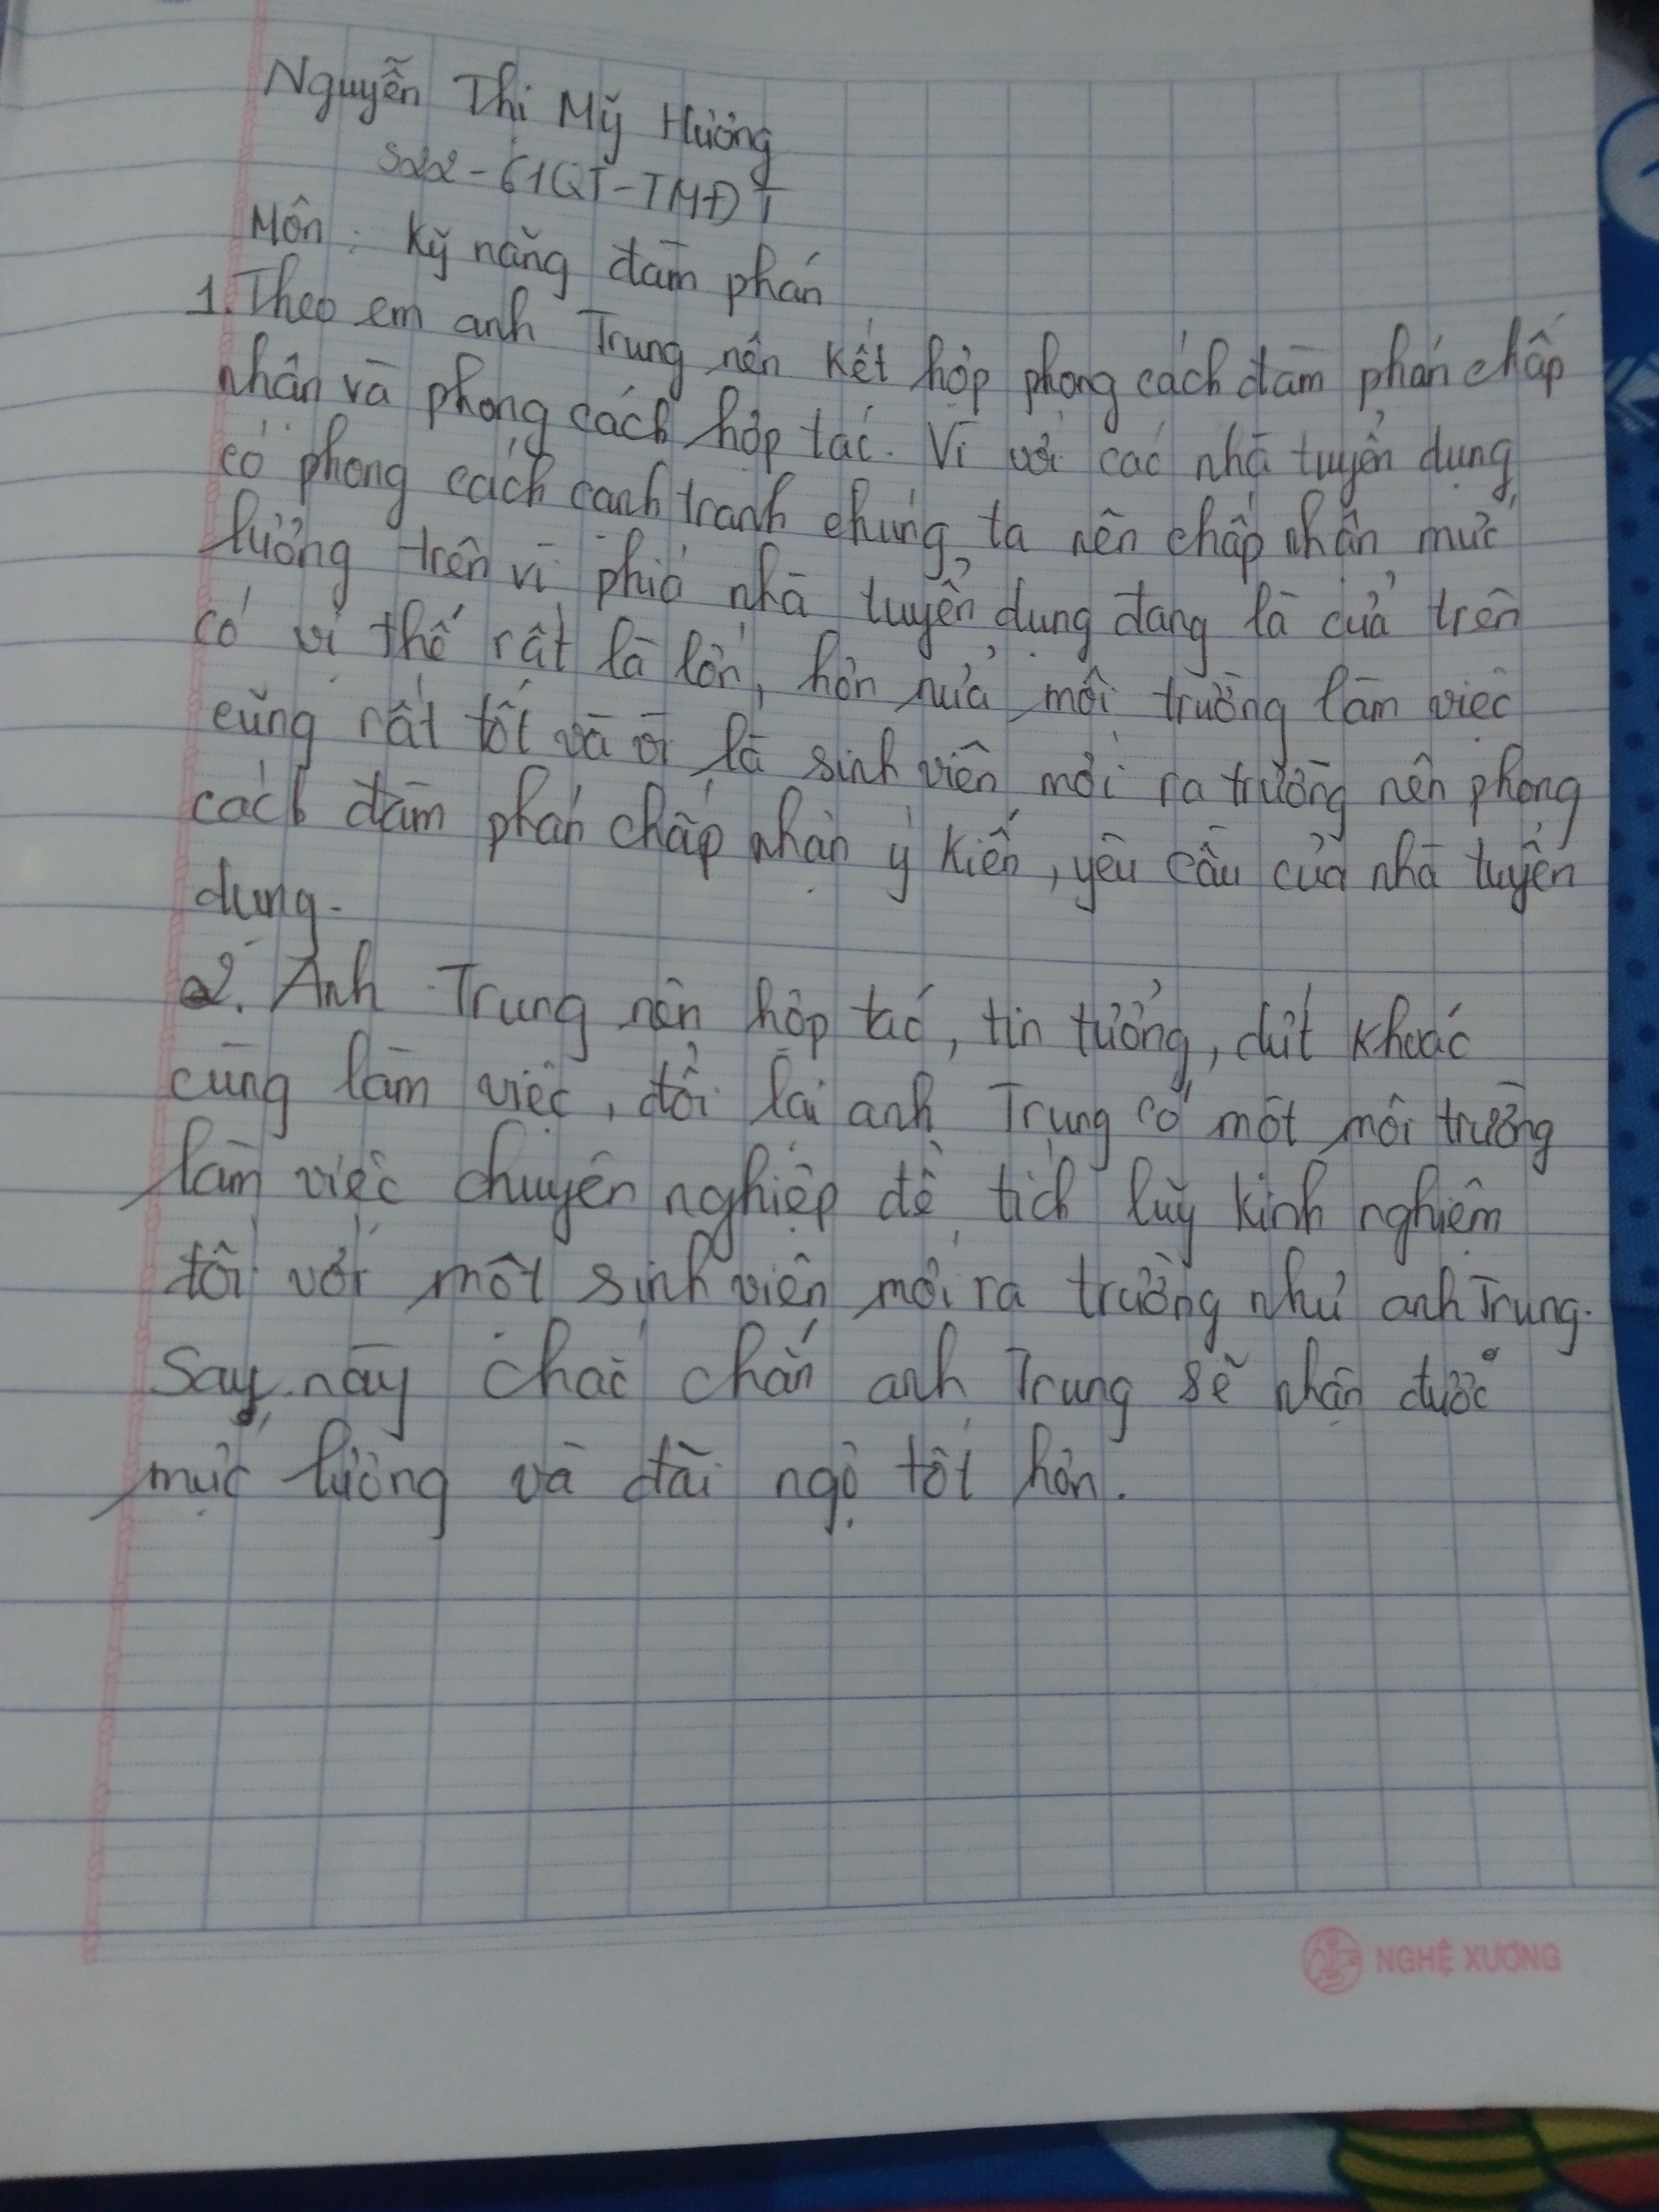 Nguyễn Thị Mỹ Hương
S22-61QT-TMĐT
Môn: Kỹ năng đàm phán
1. Theo em anh Trung nên kết hợp phong cách đàm phán chấp
nhân và phong cách hợp tác. Vì với các nhà tuyển dụng
có phong cách cạnh tranh chúng ta nên chấp nhận mức
lương trên vì phía nhà tuyển dụng đang là cửa trên
có vị thế rất là lớn, hơn nữa môi trường làm việc
cũng rất tốt và vì là sinh viên mới ra trường nên phong
cách đàm phán chấp nhận ý kiến, yêu cầu của nhà tuyển
dụng.
2. Anh Trung nên hợp tác, tin tưởng, dứt khoác
cùng làm việc, đổi lại anh Trung có một môi trường
làm việc chuyên nghiệp để tích luỹ kinh nghiệm
đối với một sinh viên mới ra trường như anh Trung.
Say này chắc chắn anh Trung sẽ nhận được
mức lương và đãi ngộ tốt hơn.
NGHỆ XƯƠNG